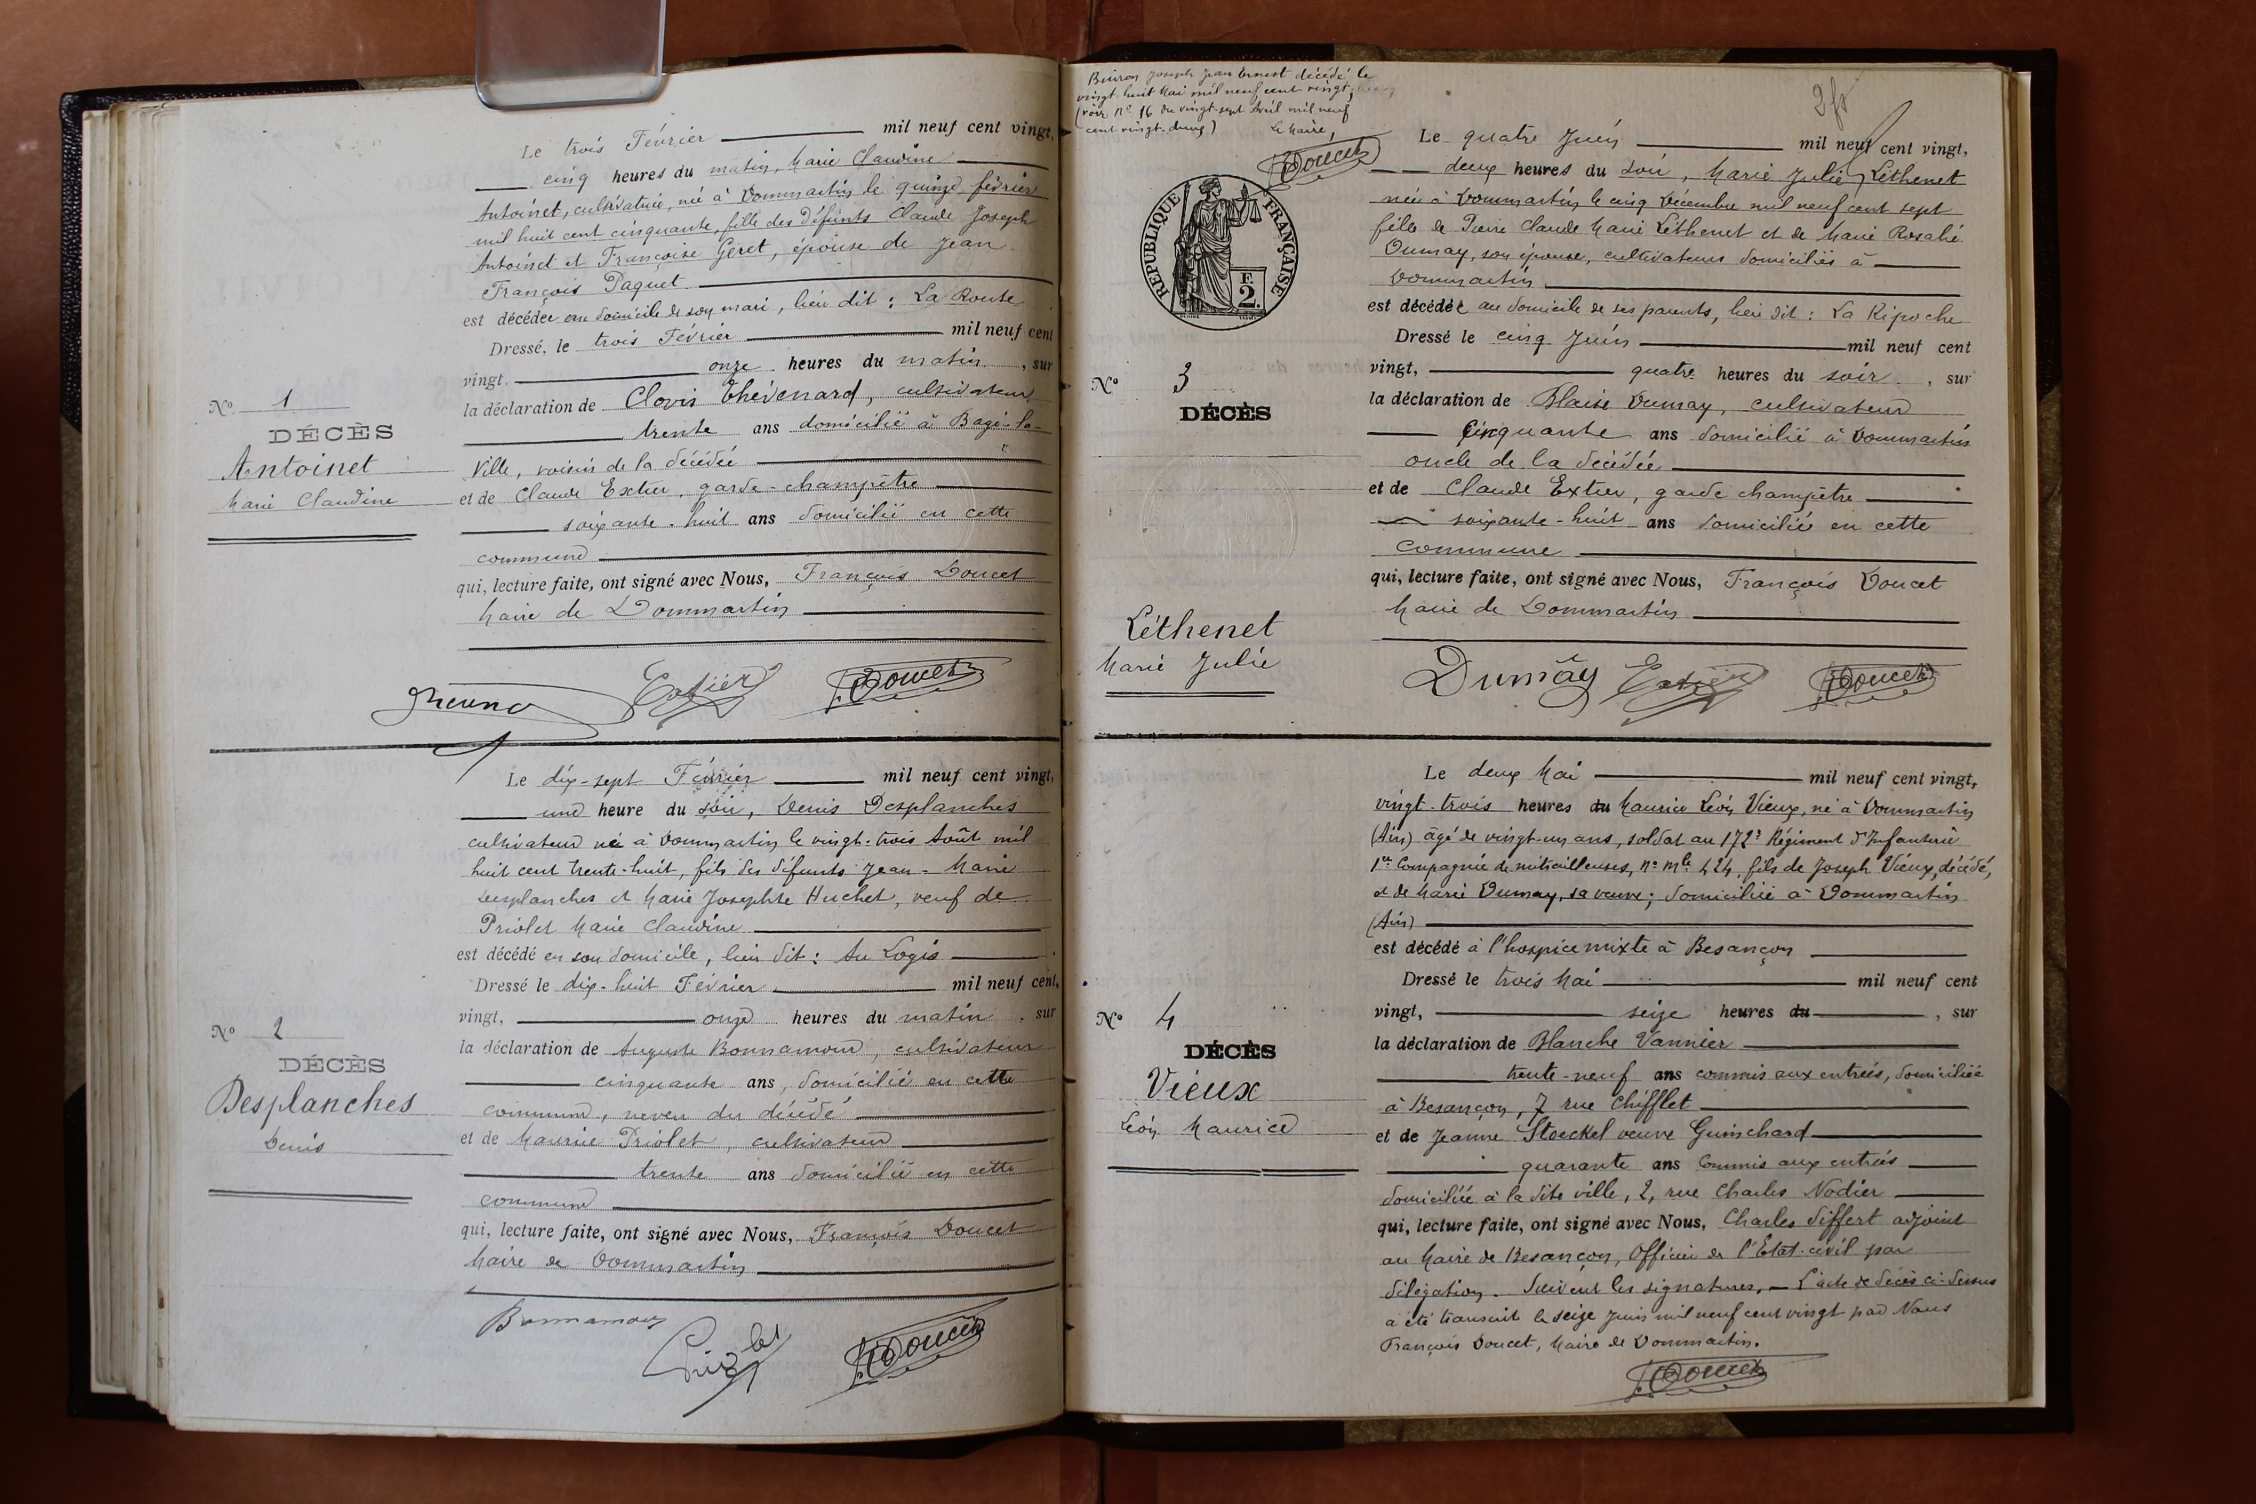 Le trois Février mil neuf cent vingt,
cinq heures du matin, Marie Claudine
Antoinet, cultivatrice, née à Dommartin le quinze février
mil huit cent cinquante, fille des défunts Claude Joseph
Antoinet et Françoise Geret, épouse de Jean
François Paquet
est décédée au domicile de son mari, lieu dit : La Route
Dressé, le trois Février mil neuf cent
vingt, onze heures du matin, sur
la déclaration de Clovis Thévenard, cultivateur
trente ans domicilié à Bagé-la-
Ville, voisin de la décédée
et de Claude Extier, garde-champêtre
soixante-huit ans domicilié en cette
commune
qui, lecture faite, ont signé avec Nous, François Doucet
Maire de Dommartin
No 1
DÉCÈS
Antoinet
Marie Claudine
Extier
F. Doucet
Le dix-sept Février mil neuf cent vingt,
une heure du soir, Denis Desplanches
cultivateur né à Dommartin le vingt-trois Août mil
huit cent trente-huit, fils des défunts Jean-Marie
Desplanches et Marie Josephte Huchet, veuf de
Priolet Marie Claudine
est décédé en son domicile, lieu dit : Au Logis
Dressé le dix-huit Février mil neuf cent,
vingt, onze heures du matin, sur
la déclaration de Auguste Bonnamour, cultivateur
cinquante ans, domicilié en cette
commune, neveu du décédé
et de Maurice Priolet, cultivateur
trente ans domicilié en cette
commune
qui, lecture faite, ont signé avec Nous, François Doucet
Maire de Dommartin
No 2
DÉCÈS
Desplanches
Denis
Bonnamour
Priolet
F. Doucet
Buiron Joseph Jean Ernest décédé le
vingt huit Mai mil neuf cent vingt,
(voir No 16 du vingt-sept Avril mil neuf
cent vingt-deux) Le Maire,
F. Doucet
2 fr
RÉPUBLIQUE FRANÇAISE
F.
2.
Le quatre Juin mil neuf cent vingt,
deux heures du soir, Marie Julie Léthenet
née à Dommartin le cinq Décembre mil neuf cent sept
fille de Pierre Claude Marie Léthenet et de Marie Rosalie
Dumay, son épouse, cultivateurs domiciliés à
Dommartin
est décédée au domicile de ses parents, lieu dit : La Ripoche
Dressé le cinq Juin mil neuf cent
vingt, quatre heures du soir, sur
la déclaration de Blaise Dumay, cultivateur
cinquante ans domicilié à Dommartin
oncle de la décédée
et de Claude Extier, garde champêtre
soixante-huit ans domicilié en cette
commune
qui, lecture faite, ont signé avec Nous, François Doucet
Maire de Dommartin
No 3
DÉCÈS
Léthenet
Marie Julie
Dumay Extier F. Doucet
Le deux Mai mil neuf cent vingt,
vingt-trois heures du Maurice Léon Vieux, né à Dommartin
(Ain) âgé de vingt-un ans, soldat au 172e Régiment d'Infanterie
1re Compagnie de mitrailleuses, no mle 424, fils de Joseph Vieux, décédé,
et de Marie Dumay, sa veuve ; domiciliée à Dommartin
(Ain)
est décédé à l'hospice mixte à Besançon
Dressé le trois Mai mil neuf cent
vingt, seize heures du, sur
la déclaration de Blanche Vannier
trente-neuf ans commis aux entrées, domiciliée
à Besançon, 7 rue Chifflet
et de Jeanne Stoeckel veuve Guinchard
quarante ans commis aux entrées
domiciliée à la dite ville, 2, rue Charles Nodier
qui, lecture faite, ont signé avec Nous, Charles Siffert adjoint
au Maire de Besançon, Officier de l'Etat-civil par
délégation. Suivent les signatures. – L'acte de décès ci-dessus
a été transcrit le seize Juin mil neuf cent vingt par Nous
François Doucet, Maire de Dommartin.
No 4
DÉCÈS
Vieux
Léon Maurice
F. Doucet